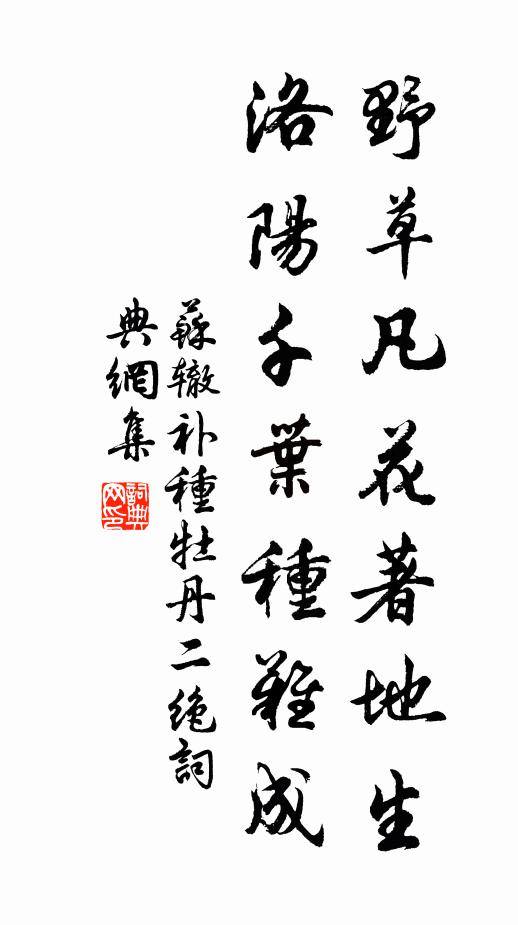 野草凡花著地生
洛陽千葉種難成
蘇辙补種牡丹二绝詞
典網集
詞典网印